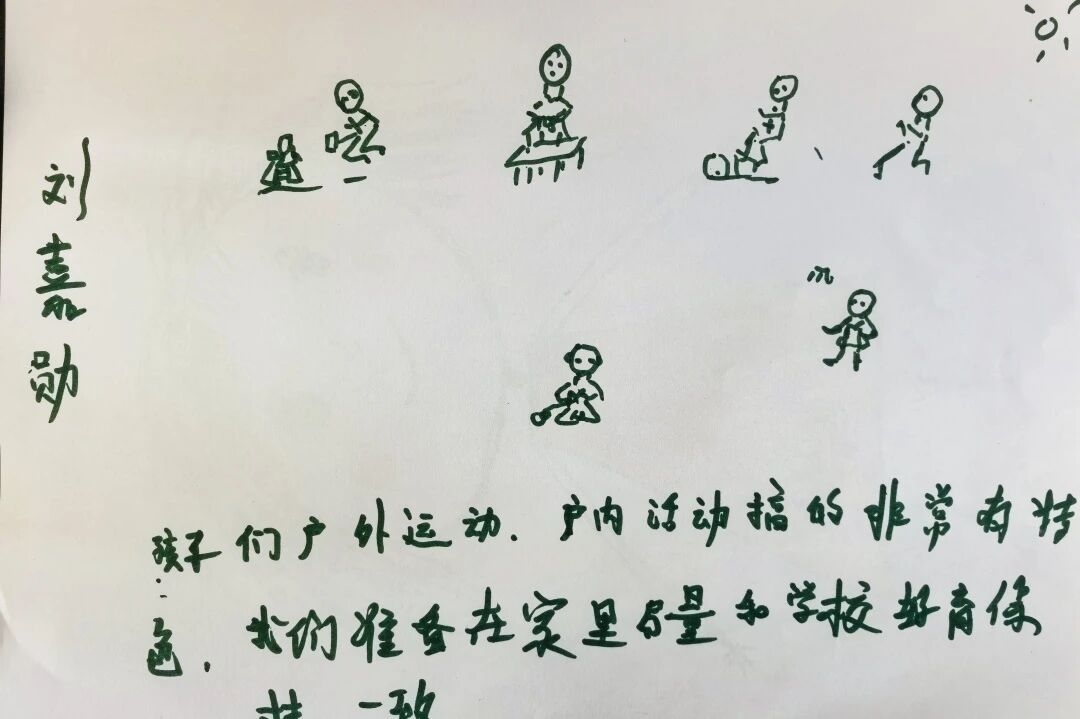 刘嘉勋
孩子们户外运动.户内活动搞的非常有特
色.我们准备在家里尽量和学校教育保
持一致